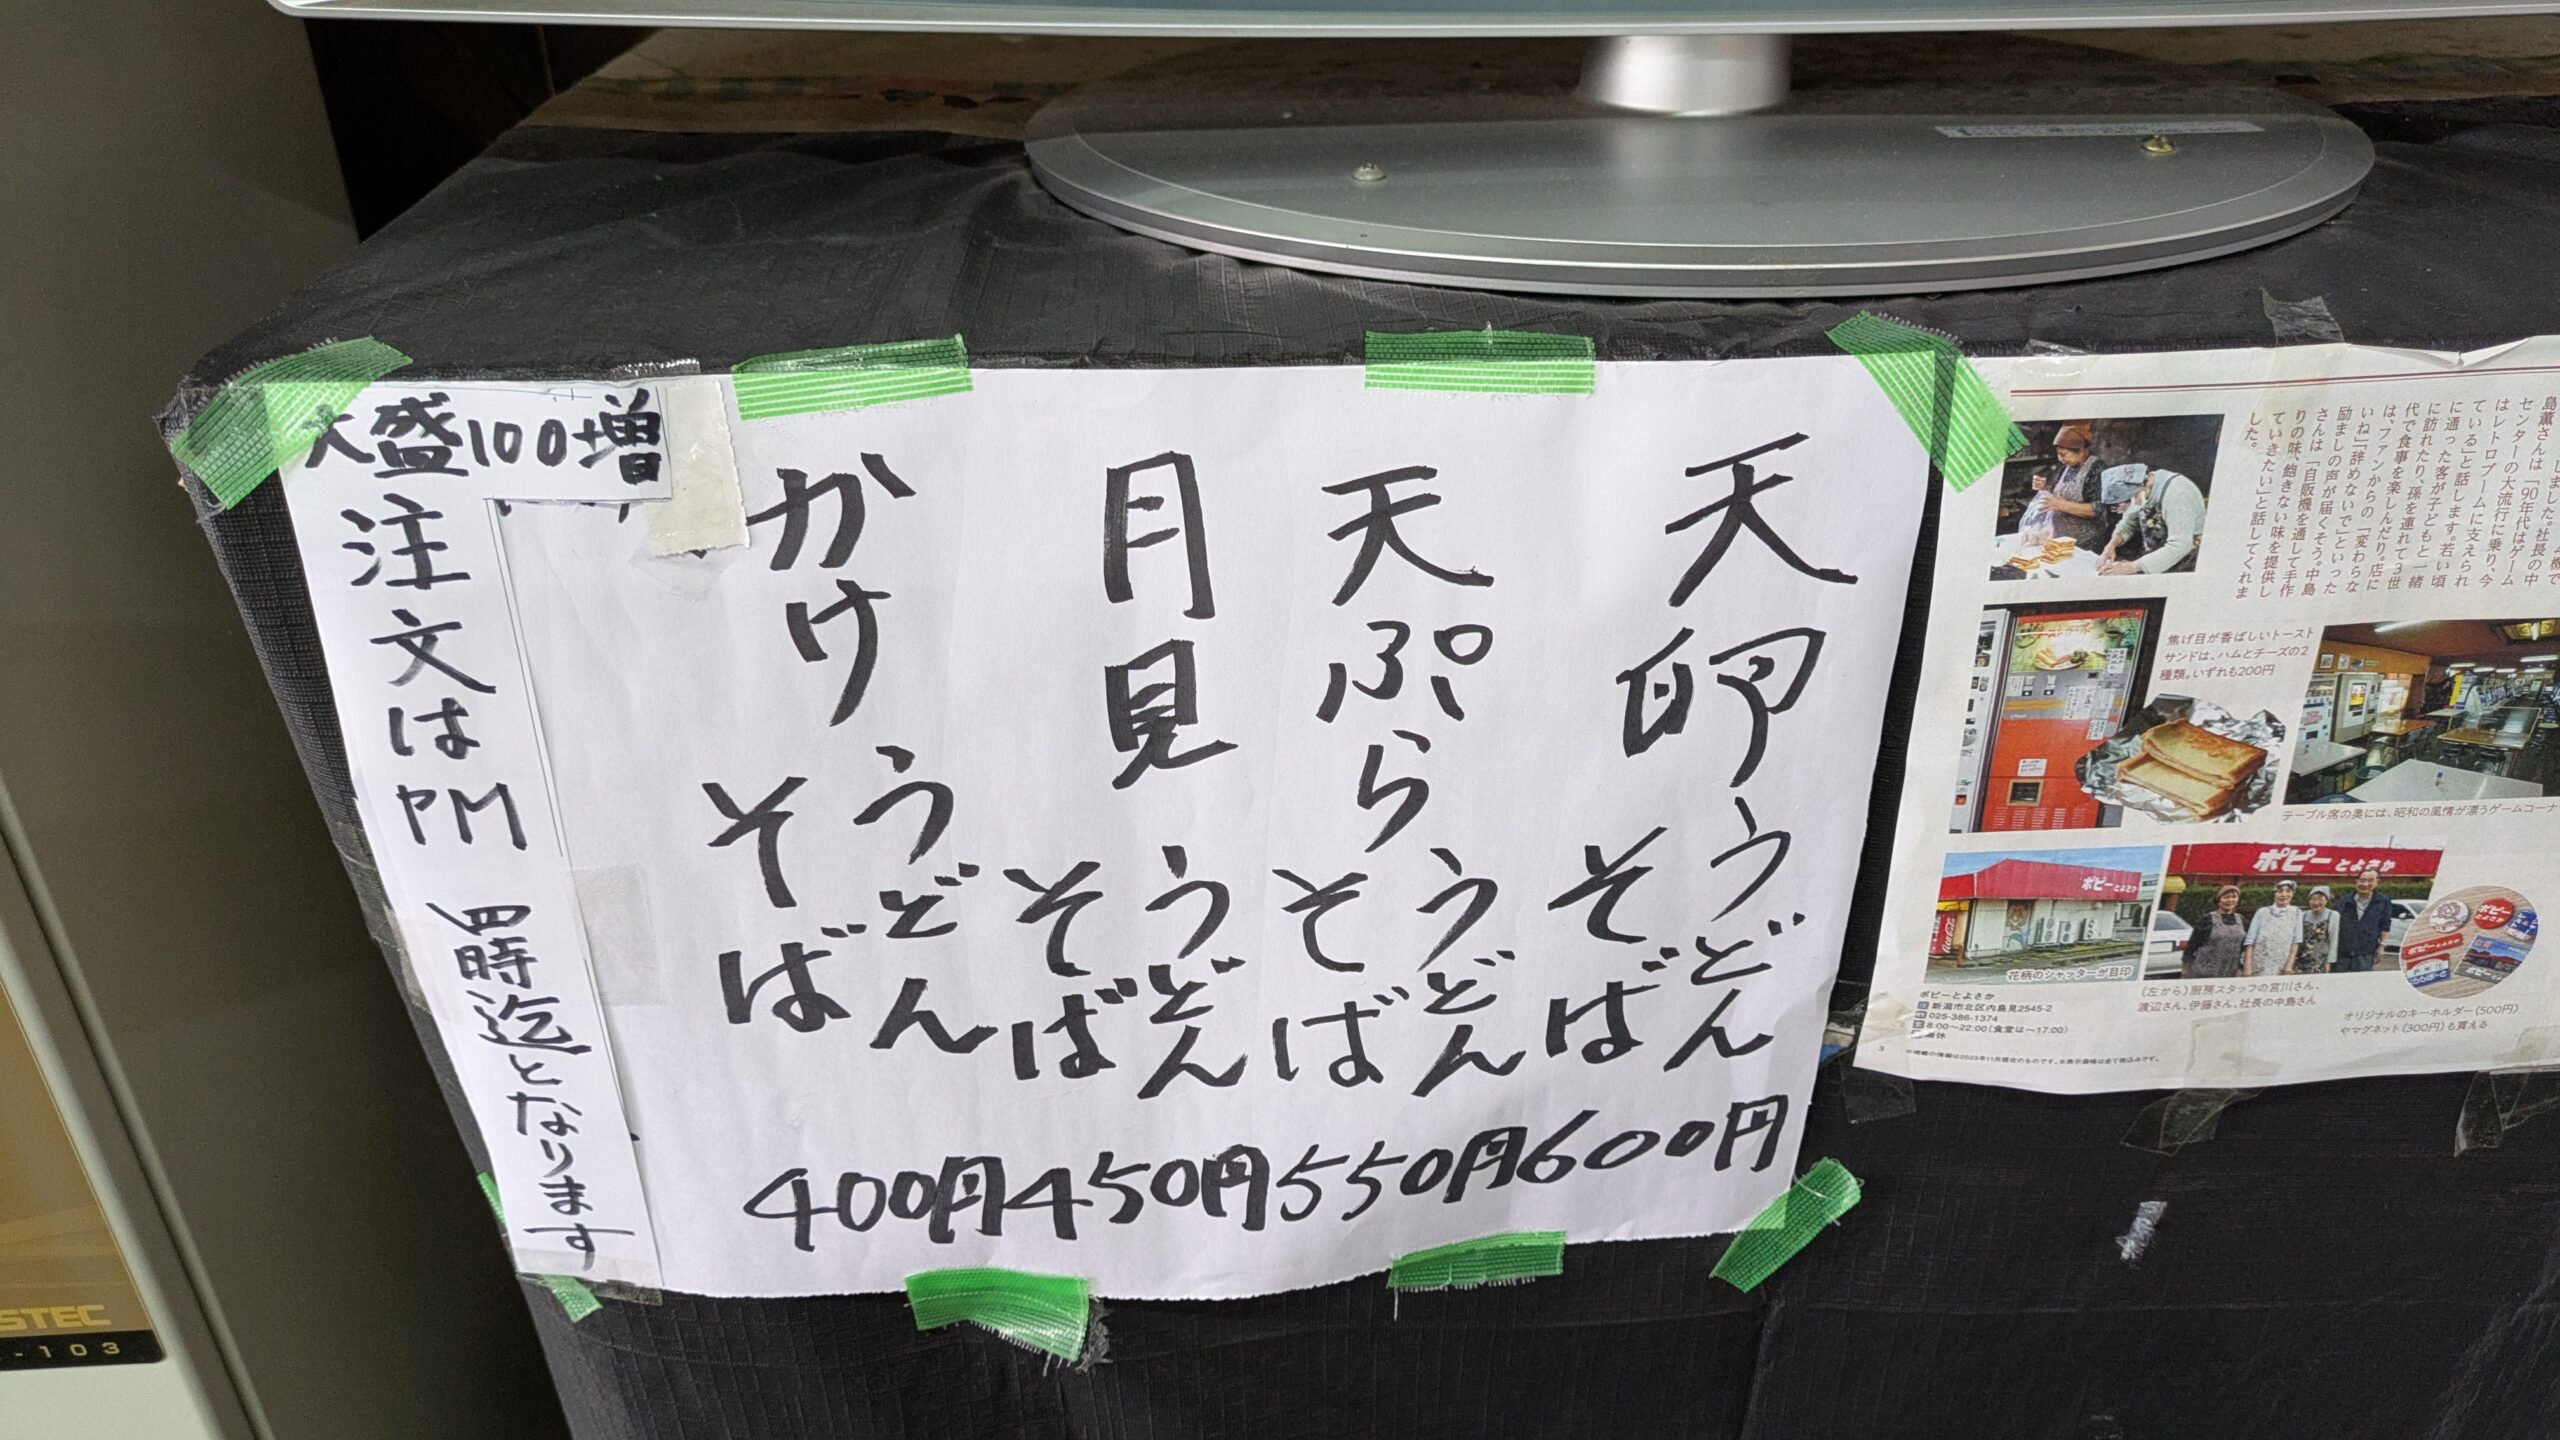 天卵うどん
そば
600円
天ぷらうどん
そば
550円
月見うどん
そば
450円
かけうどん
そば
400円
大盛100増
注文はPM四時迄となります
島薫さんは「90年代はゲーム
センターの大流行に乗り、今
はレトロブームに支えられ
ている」と話します。若い頃
に通った客が子どもと一緒
に訪れたり、孫を連れて3世
代で食事を楽しんだり。店に
は、ファンからの「変わらな
いね」「辞めないで」といった
励ましの声が届くそう。中島
さんは「自販機を通して手作
りの味、飽きない味を提供し
ていきたい」と話してくれま
した。
焦げ目が香ばしいトースト
サンドは、ハムとチーズの2
種類。いずれも200円
テーブル席の奥には、昭和の風情が漂うゲームコーナ
ポピーとよさか
花柄のシャッターが目印
ポピーとよさか
(左から)厨房スタッフの宮川さん、
渡辺さん、伊藤さん、社長の中島さん
オリジナルのキーホルダー(500円)
やマグネット(300円)も買える
ポピーとよさか
新潟市北区内島見2545-2
025-386-1374
8:00〜22:00(食堂は〜17:00)
3
※掲載の情報は2023年11月現在のものです。※表示価格は全て税込みです。
STEC
-103